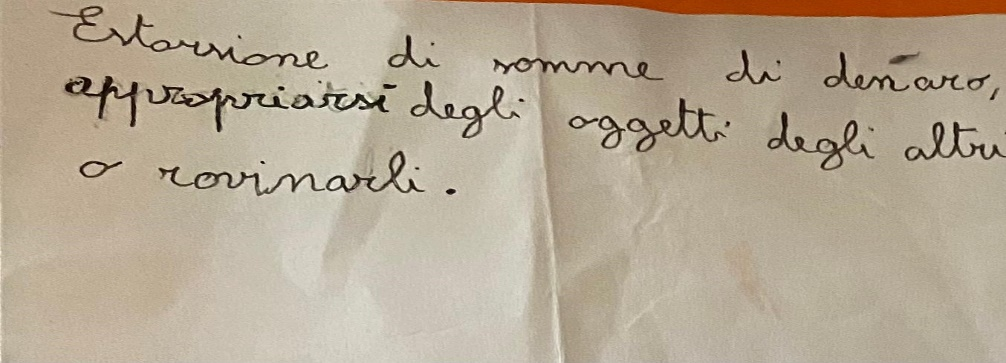 Estorsione di somme di denaro,
appropriarsi degli oggetti degli altri
o rovinarli.